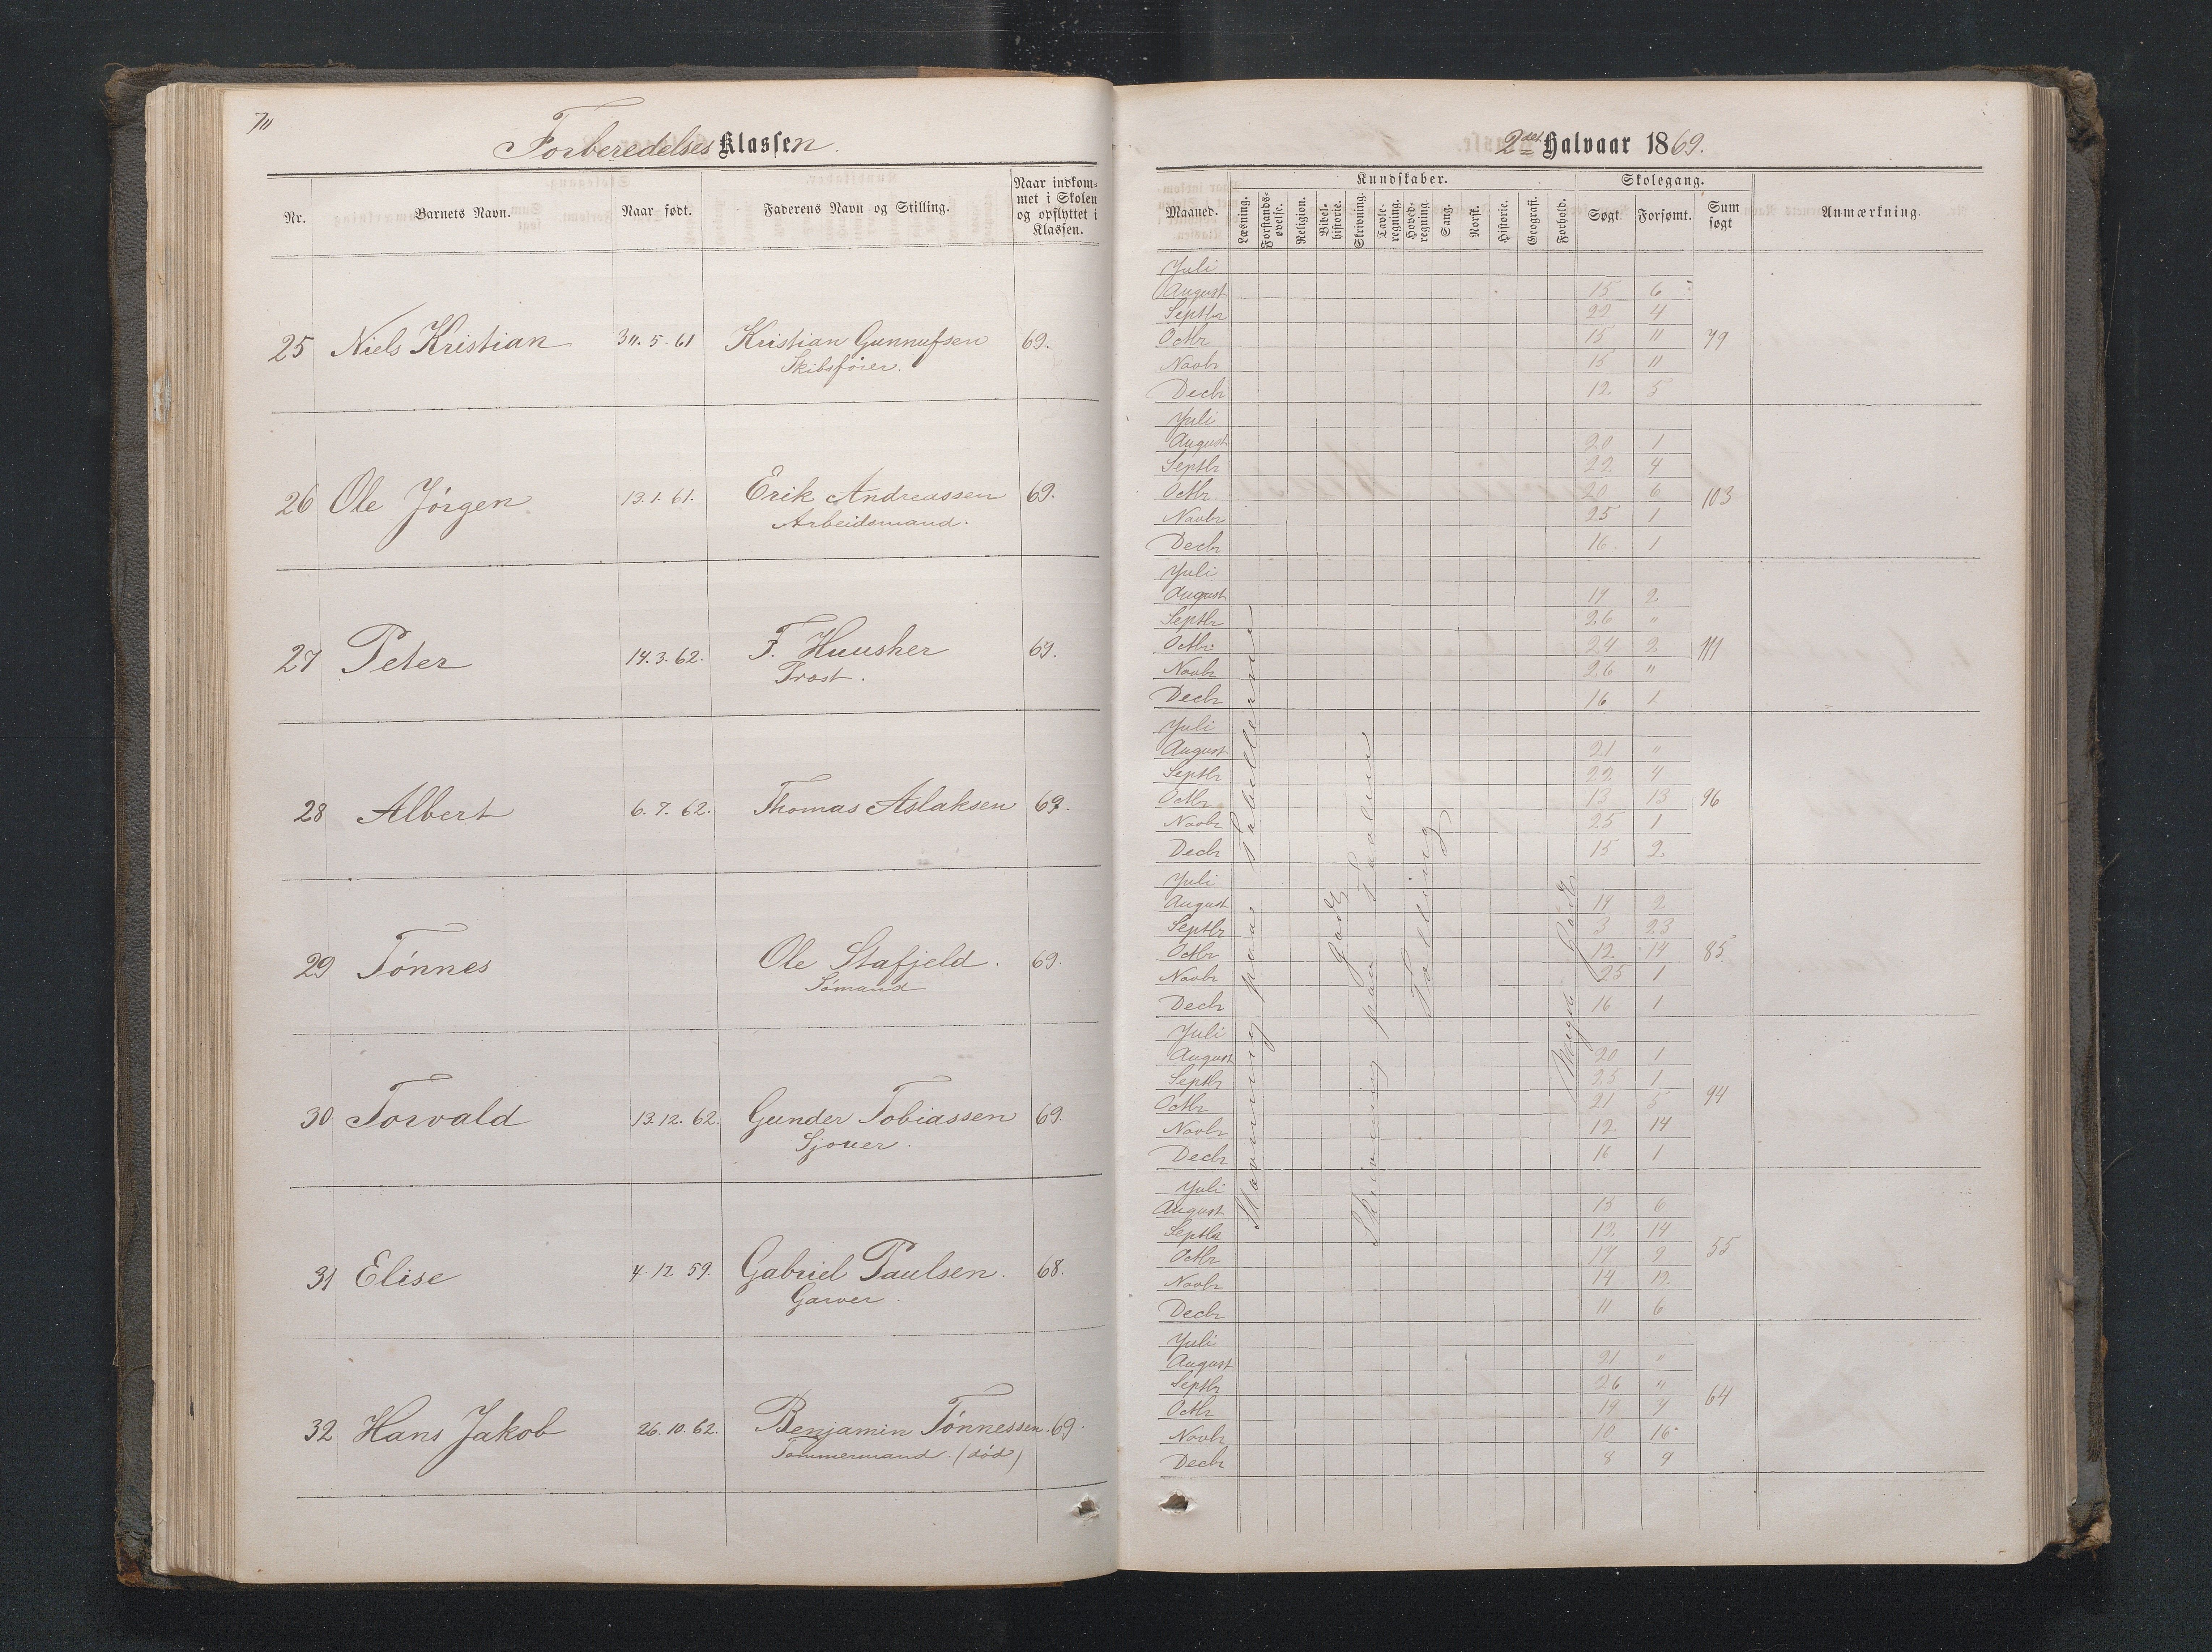 70
Forberedelses Klassen.
Nr.
Barnets Navn.
Naar født.
Faderens Navn og Stilling.
Naar indkom-
met i Skolen
og opflyttet i
Klassen.
25 Niels Kristian 30.5.61 Kristian Gunnufsen 69.
Skibsfører.
26 Ole Jörgen 13.1.61. Erik Andreassen 69.
Arbeidsmand.
27 Peter 14.3.62. F. Huusher 69.
Prost.
28 Albert 6.7.62. Thomas Aslaksen 69.
29 Tönnes Ole Stafjeld. 69.
Sömand
30 Torvald 13.12.62. Gunder Tobiassen 69.
Sjouer.
31 Elise 4.12 59. Gabriel Paulsen. 68.
Garver.
32 Hans Jakob 26.10.62. Benjamin Tönnessen. 69.
Tømmermand. (död)
2det Halvaar 1869.
Maaned.
Kundskaber.
Læsning.
Forstands-
øvelse.
Religion.
Bibel-
historie.
Skrivning.
Tavle-
regning.
Hoved-
regning.
Sang.
Norsk.
Historie.
Geografi.
Forhold.
Skolegang.
Søgt.
Forsømt.
Sum
søgt
Anmærkning.
Juli
August 15 6
Septbr 22 4
Octbr 15 11 79
Novbr 15 11
Decbr 12 5
Juli
August 20 1
Septbr 22 4
Octbr 20 6 103
Novbr 25 1
Decbr 16 1
Juli
August 19 2
Septbr 26 "
Octbr 24 2 111
Novbr 26 "
Decbr 16 1
Juli
August 21 "
Septbr 22 4
Octbr 13 13 96
Novbr 25 1
Decbr 15 2
Juli
August 19 2
Septbr 3 23
Octbr 12 14 85
Novbr 25 1
Decbr 16 1
Juli
August 20 1
Septbr 25 1
Octbr 21 5 94
Novbr 12 14
Decbr 16 1
Juli
August 15 6
Septbr 12 14
Octbr 17 9 55
Novbr 14 12
Decbr 11 6
Juli
August 21 "
Septbr 26 "
Octbr 19 7 64
Novbr 10 16
Decbr 8 9
Stavning paa Tabellerne
Godt
Skrivning paa Tavlen
Tælling
Meget Godt